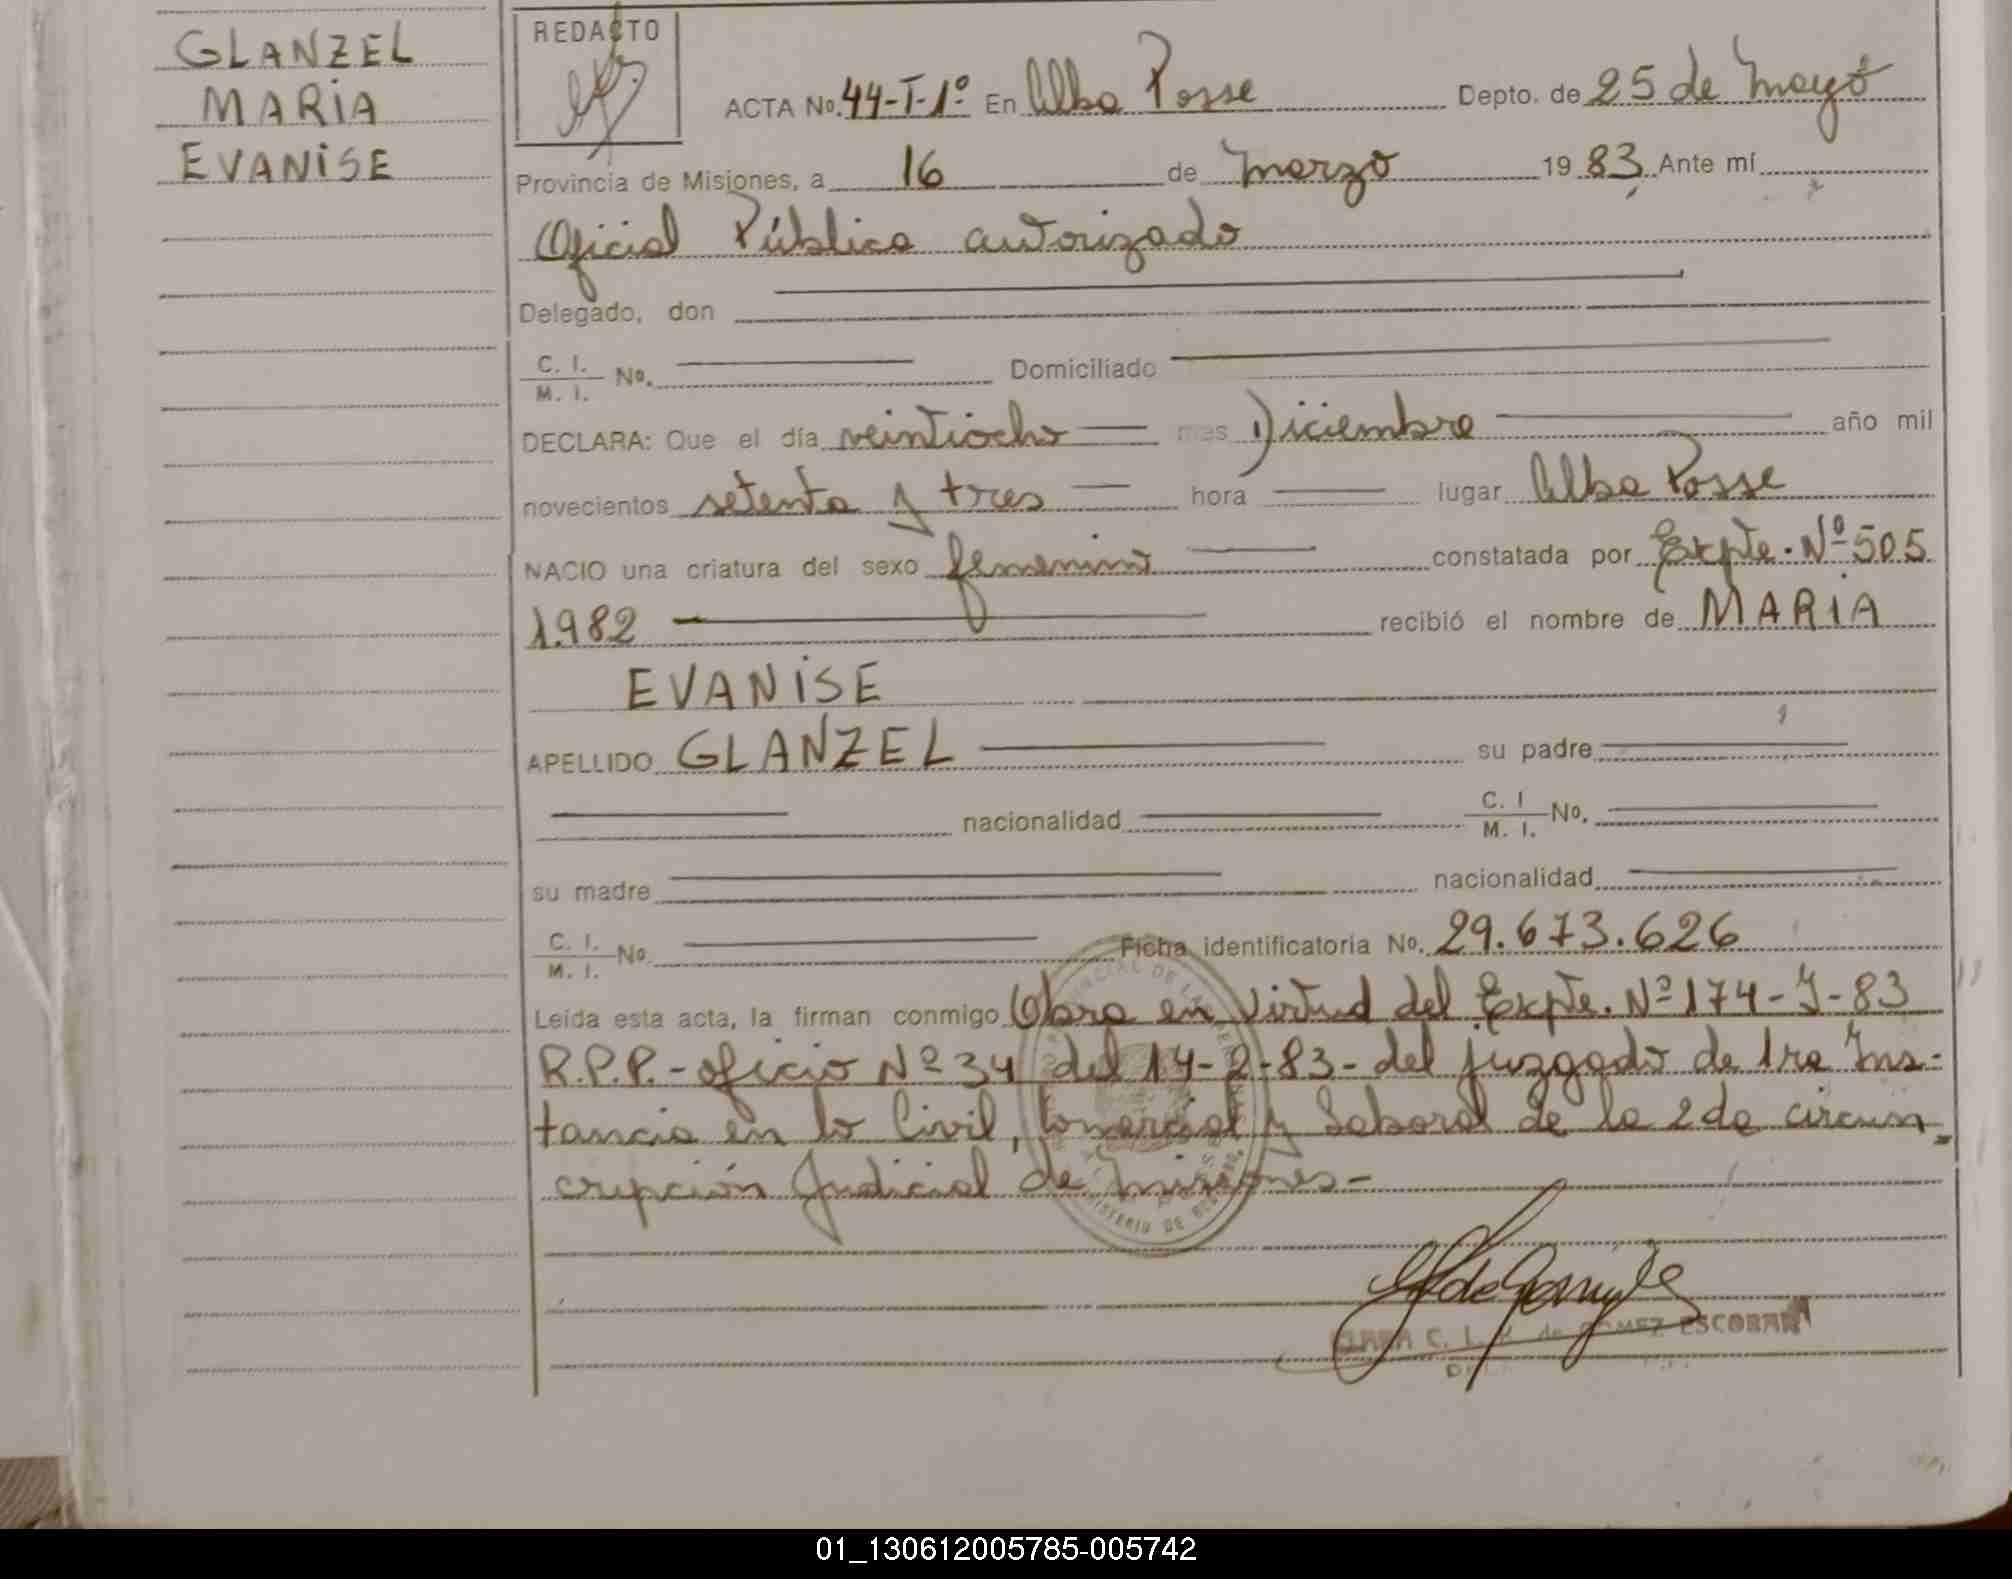 GLANZEL
MARIA
EVANISE
REDACTO
ACTA No. 44-I-1º En Alba Posse Depto. de 25 de Mayo
Provincia de Misiones, a 16 de Marzo 1983, Ante mí
Oficial Público autorizado
Delegado, don
C. I. / M. I. No. Domiciliado
DECLARA: Que el día veintiocho mes Diciembre año mil
novecientos setenta y tres hora lugar Alba Posse
NACIO una criatura del sexo femenino constatada por Expte. Nº 505
1982 recibió el nombre de MARIA
EVANISE
APELLIDO GLANZEL su padre
nacionalidad C. I / M. I. No.
su madre nacionalidad
C. I. / M. I. No. Ficha identificatoria No. 29.673.626
Leída esta acta, la firman conmigo Obra en Virtud del Expte. Nº 174-J-83
R.P.P.-oficio Nº 34 del 14-2-83-del juzgado de 1ra Ins-
tancia en lo Civil, Comercial y Laboral de la 2da circun
cripción Judicial de Misiones-
CLARA C. L. de GOMEZ ESCOBAR
01_130612005785-005742